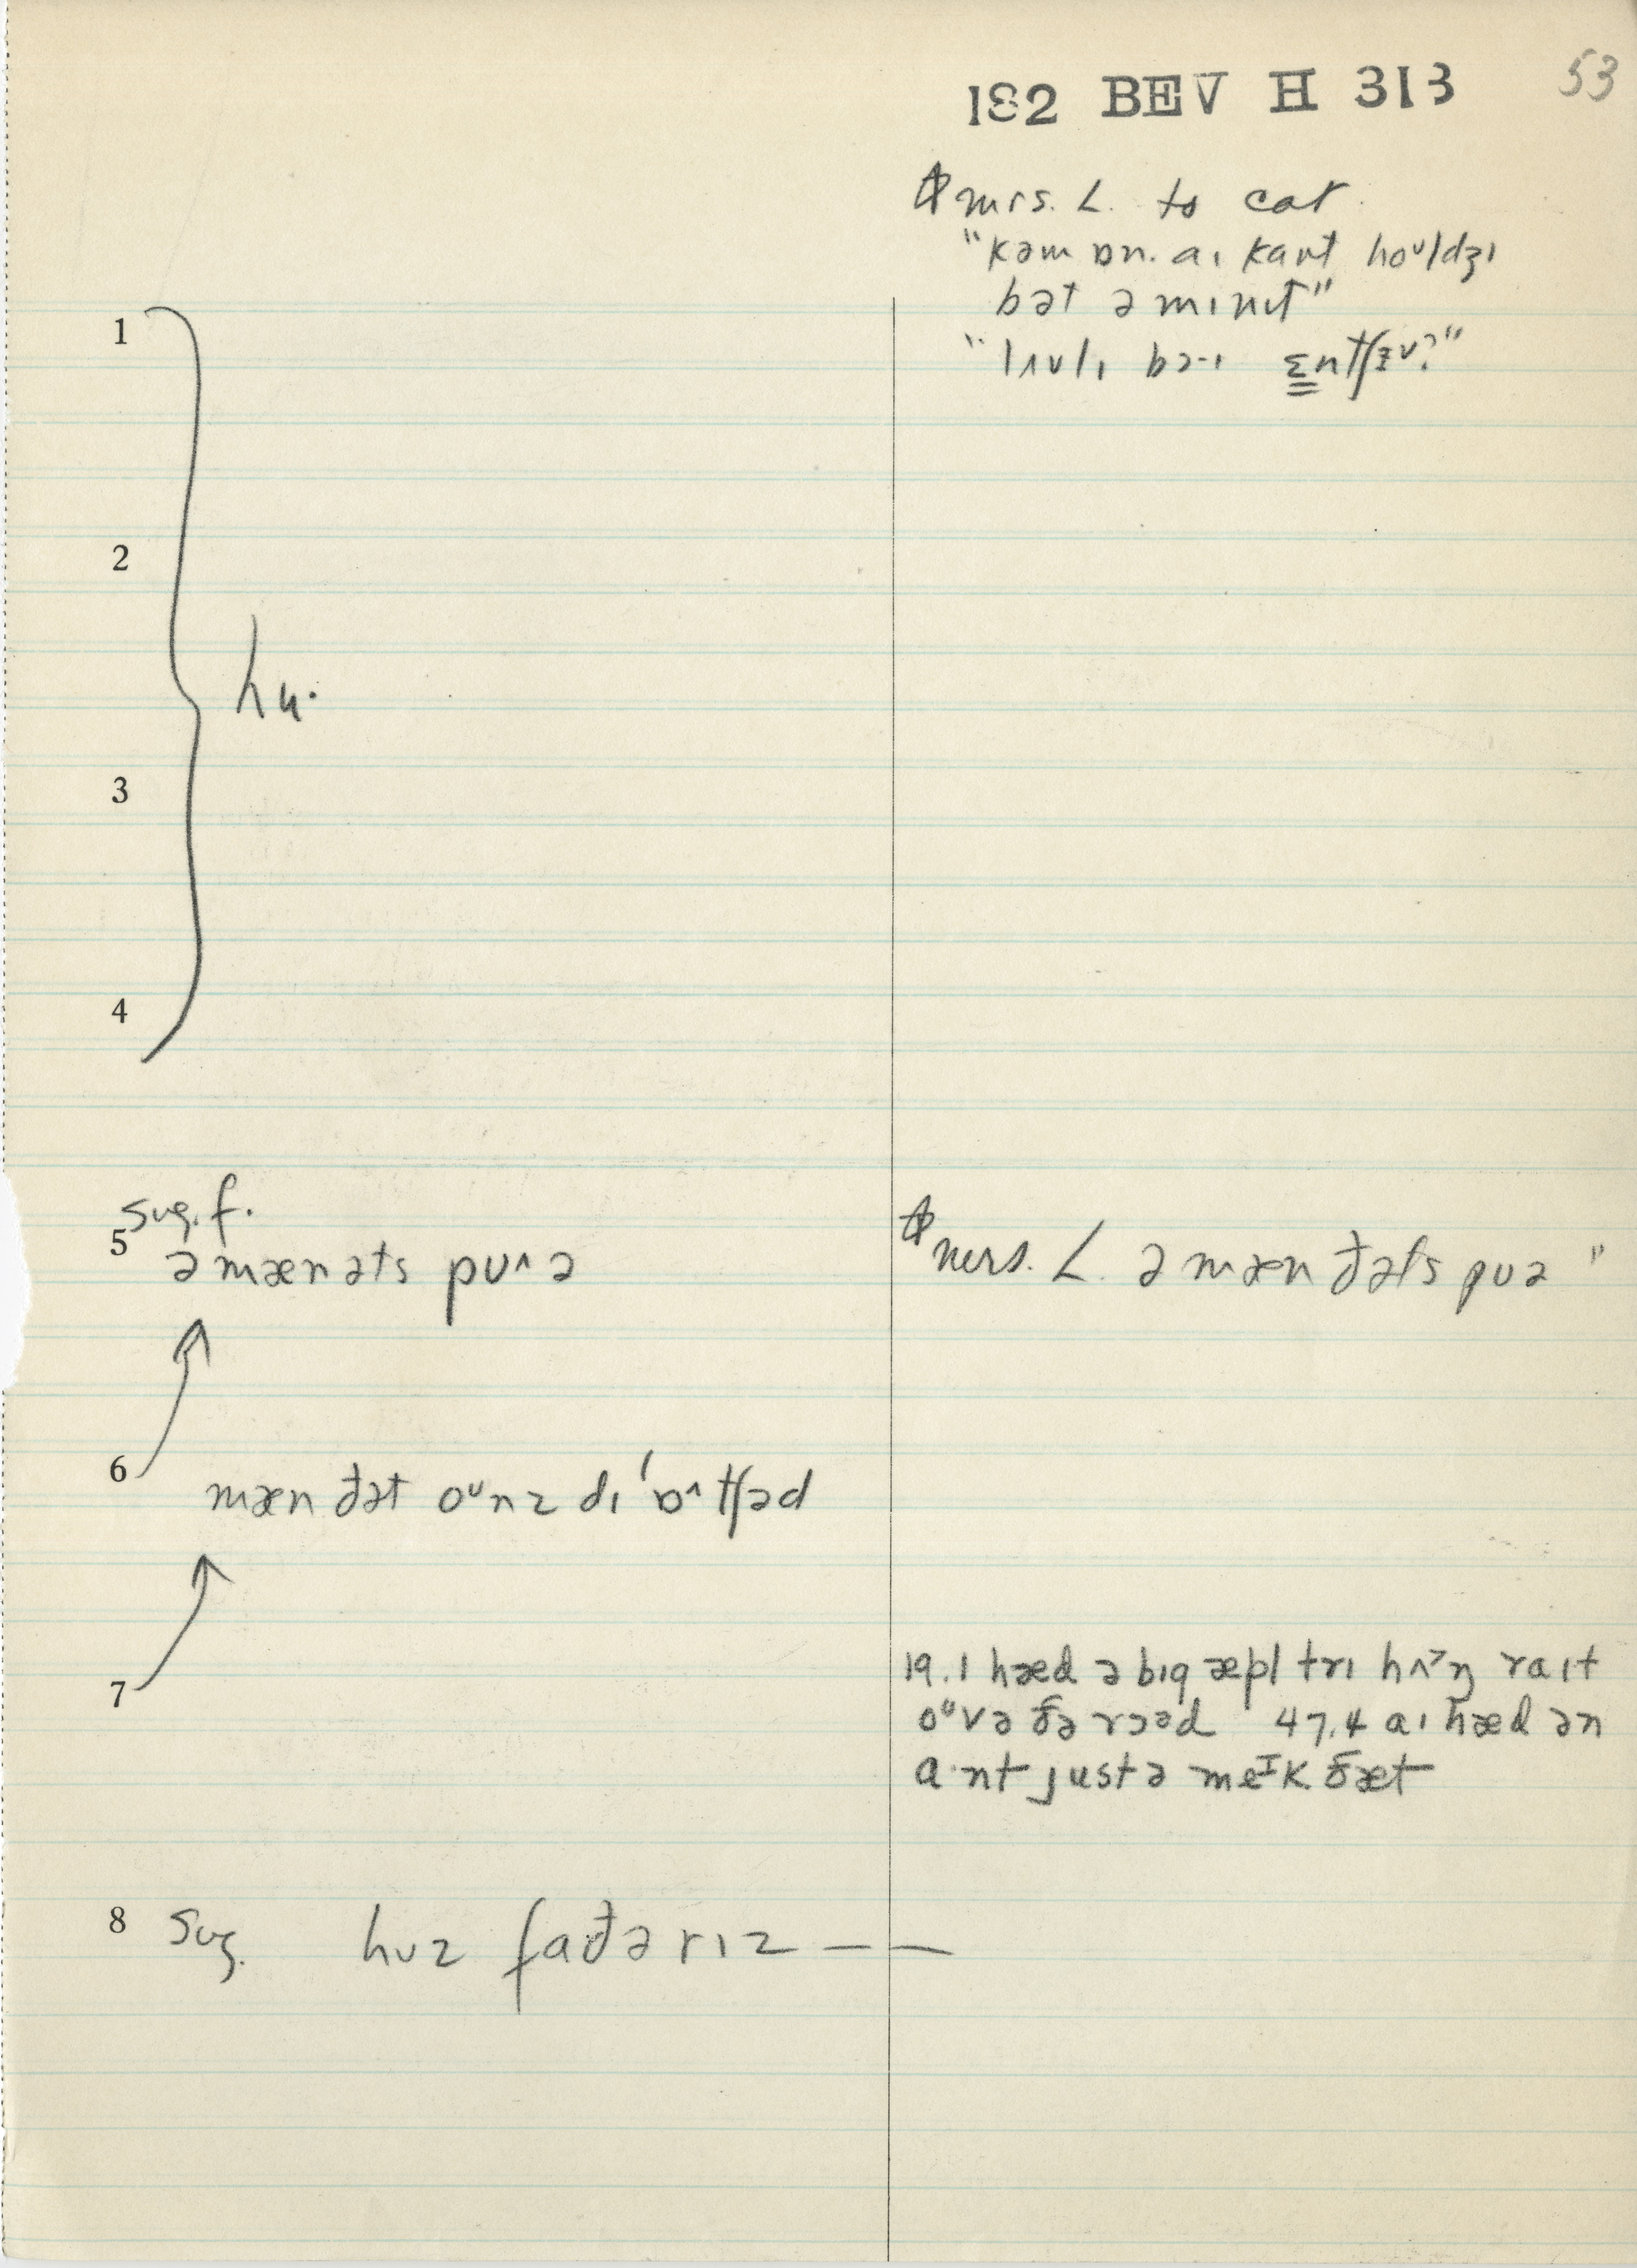 182 BEV H 313 53
mrs. L. to cat.
"kəm ɒn. aɪ kant hoᶷldʒɪ
bət ə mɪnɪt"
1
2
hu·
3
4
sug. f.
5 ə mænəts pʊ^ə
mrs. L. ə mæn đəts pʊə"
6 mæn đət oᶷnz dɪ 'ɒ^tʃəd
7
19.1 hæd ə bɪg æpl trɪ hʌ^>ŋ raɪt
oᶷvə ðə rɔəd 47.4 aɪ hæd ən
a·nt justə meᴵk ðæt
8 Sug. hʊz fađə rɪz — —